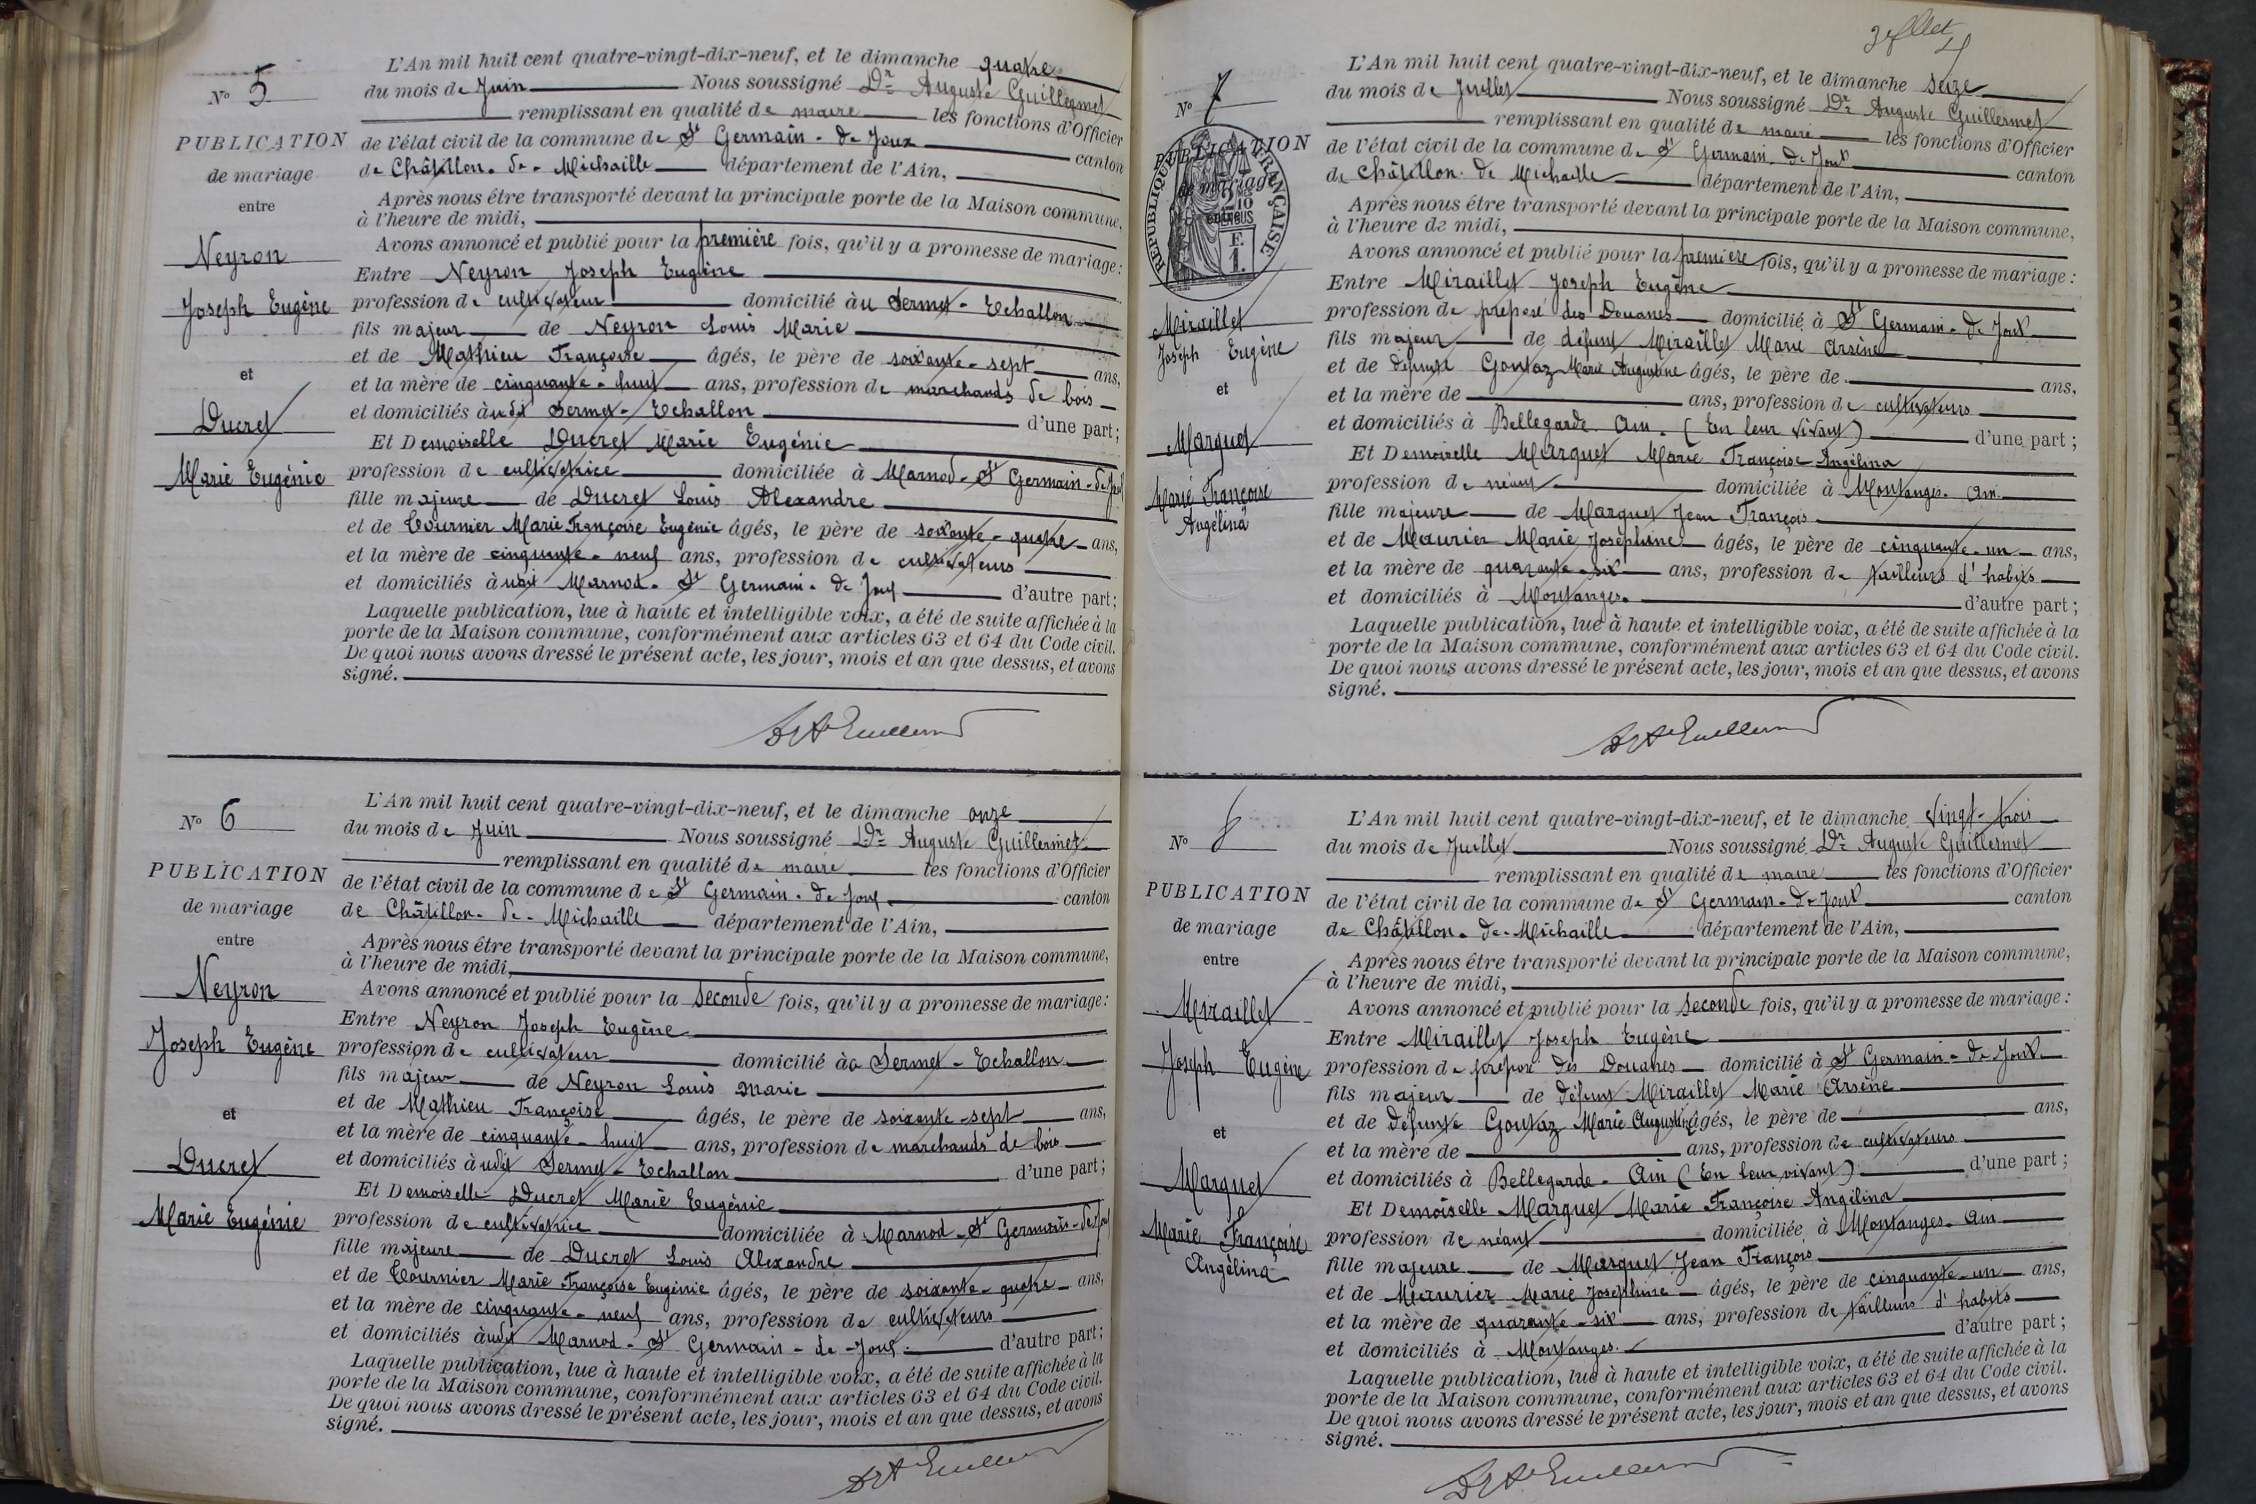 L'An mil huit cent quatre-vingt-dix-neuf, et le dimanche quatre
No 5
du mois de Juin Nous soussigné Dr Auguste Guillermet
remplissant en qualité de maire les fonctions d'Officier
PUBLICATION
de mariage
entre
Neyron
Joseph Eugène
et
Ducret
Marie Eugénie
de l'état civil de la commune de St Germain-de-Joux canton
de Châtillon-de-Michaille département de l'Ain,
Après nous être transporté devant la principale porte de la Maison commune,
à l'heure de midi,
Avons annoncé et publié pour la première fois, qu'il y a promesse de mariage:
Entre Neyron Joseph Eugène
profession de cultivateur domicilié àu Sermet-Echallon
fils majeur de Neyron Louis Marie
et de Mathieu Françoise âgés, le père de soixante-sept ans,
et la mère de cinquante-huit ans, profession de marchands de bois
et domiciliés àudit Sermet-Echallon d'une part;
Et Demoiselle Ducret Marie Eugénie
profession de cultivatrice domiciliée à Marnod-St Germain-de-Joux
fille majeure de Ducret Louis Alexandre
et de Tournier Marie Françoise Eugénie âgés, le père de soixante-quatre ans,
et la mère de cinquante-neuf ans, profession de cultivateurs
et domiciliés àudit Marnod-St Germain-de Joux d'autre part;
Laquelle publication, lue à haute et intelligible voix, a été de suite affichée à la
porte de la Maison commune, conformément aux articles 63 et 64 du Code civil.
De quoi nous avons dressé le présent acte, les jour, mois et an que dessus, et avons
signé.
Dr Ate Guillermet
No 6
PUBLICATION
de mariage
entre
Neyron
Joseph Eugène
et
Ducret
Marie Eugénie
L'An mil huit cent quatre-vingt-dix-neuf, et le dimanche onze
du mois de Juin Nous soussigné Dr Auguste Guillermet
remplissant en qualité de maire les fonctions d'Officier
de l'état civil de la commune de St Germain-de Joux canton
de Châtillon-de-Michaille département de l'Ain,
Après nous être transporté devant la principale porte de la Maison commune,
à l'heure de midi,
Avons annoncé et publié pour la seconde fois, qu'il y a promesse de mariage:
Entre Neyron Joseph Eugène
profession de cultivateur domicilié àu Sermet-Echallon
fils majeur de Neyron Louis Marie
et de Mathieu Françoise âgés, le père de soixante-sept ans,
et la mère de cinquante-huit ans, profession de marchands de bois
et domiciliés àudit Sermet-Echallon d'une part;
Et Demoiselle Ducret Marie Eugénie
profession de cultivatrice domiciliée à Marnod-St Germain-de-Joux
fille majeure de Ducret Louis Alexandre
et de Tournier Marie Françoise Eugénie âgés, le père de soixante-quatre ans,
et la mère de cinquante-neuf ans, profession de cultivateurs
et domiciliés àudit Marnod-St Germain-de-Joux d'autre part;
Laquelle publication, lue à haute et intelligible voix, a été de suite affichée à la
porte de la Maison commune, conformément aux articles 63 et 64 du Code civil.
De quoi nous avons dressé le présent acte, les jour, mois et an que dessus, et avons
signé.
Dr Ate Guillermet
No 7
PUBLICATION
de mariage
entre
RÉPUBLIQUE FRANÇAISE
2/10
EN SUS
F.
1.
Miraillet
Joseph Eugène
et
Marquet
Marie Françoise
Angélina
L'An mil huit cent quatre-vingt-dix-neuf, et le dimanche seize
du mois de Juillet Nous soussigné Dr Auguste Guillermet
remplissant en qualité de maire les fonctions d'Officier
de l'état civil de la commune de St Germain-de Joux canton
de Châtillon-de Michaille département de l'Ain,
Après nous être transporté devant la principale porte de la Maison commune,
à l'heure de midi,
Avons annoncé et publié pour la première fois, qu'il y a promesse de mariage:
Entre Miraillet Joseph Eugène
profession de préposé des Douanes domicilié à St Germain-de Joux
fils majeur de défunt Miraillet Marie Arsène
et de défunte Goutaz Marie Augustine âgés, le père de ans,
et la mère de ans, profession de cultivateurs
et domiciliés à Bellegarde-Ain. (En leur vivant) d'une part;
Et Demoiselle Marquet Marie Françoise Angélina
profession de néant domiciliée à Montanges-Ain.
fille majeure de Marquet Jean François
et de Maurier Marie Joséphine âgés, le père de cinquante-un ans,
et la mère de quarante-six ans, profession de tailleurs d'habits
et domiciliés à Montanges. d'autre part;
Laquelle publication, lue à haute et intelligible voix, a été de suite affichée à la
porte de la Maison commune, conformément aux articles 63 et 64 du Code civil.
De quoi nous avons dressé le présent acte, les jour, mois et an que dessus, et avons
signé.
Dr Ate Guillermet
No 8
PUBLICATION
de mariage
entre
Miraillet
Joseph Eugène
et
Marquet
Marie Françoise
Angélina
L'An mil huit cent quatre-vingt-dix-neuf, et le dimanche vingt-trois
du mois de Juillet Nous soussigné Dr Auguste Guillermet
remplissant en qualité de maire les fonctions d'Officier
de l'état civil de la commune de St Germain-de Joux canton
de Châtillon-de-Michaille département de l'Ain,
Après nous être transporté devant la principale porte de la Maison commune,
à l'heure de midi,
Avons annoncé et publié pour la seconde fois, qu'il y a promesse de mariage:
Entre Miraillet Joseph Eugène
profession de préposé des Douanes domicilié à St Germain-de-Joux
fils majeur de défunt Miraillet Marie Arsène
et de défunte Goutaz Marie Augustine âgés, le père de ans,
et la mère de ans, profession de cultivateurs
et domiciliés à Bellegarde-Ain (En leur vivant) d'une part;
Et Demoiselle Marquet Marie Françoise Angélina
profession de néant domiciliée à Montanges-Ain
fille majeure de Marquet Jean François
et de Maurier Marie Joséphine âgés, le père de cinquante-un ans,
et la mère de quarante-six ans, profession de tailleurs d'habits
et domiciliés à Montanges. d'autre part;
Laquelle publication, lue à haute et intelligible voix, a été de suite affichée à la
porte de la Maison commune, conformément aux articles 63 et 64 du Code civil.
De quoi nous avons dressé le présent acte, les jour, mois et an que dessus, et avons
signé.
Dr Ate Guillermet